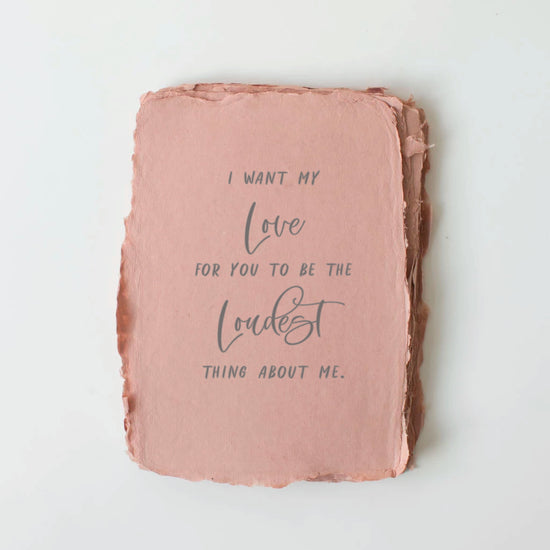 I WANT MY
Love
FOR YOU TO BE THE
Loudest
THING ABOUT ME.